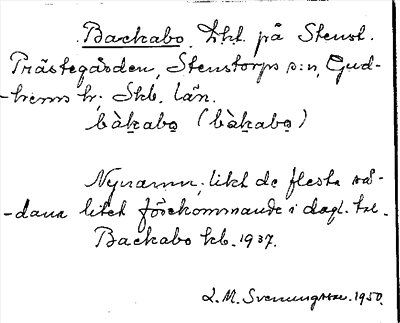 Backabo. Lht. på Stenst.
Prästegården, Stenstorps s:n, Gud-
-hems h; Skb. län.
bàkabo̱ (bàkabo̱)
Nynamn, likt de flesta så-
-dana litet förekommande i dagl. tal.
Backabo kb. 1937.
L. M. Svenungsson. 1950.